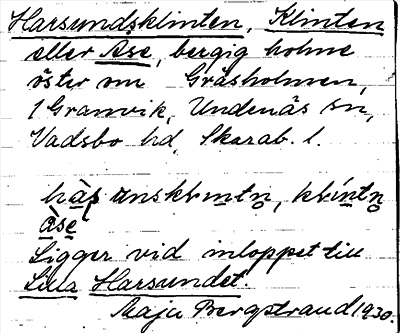 Harsundsklinten, Klinten
eller Åse, bergig holme
öster om Gråsholmen,
1 Granvik, Undenäs sn,
Vadsbo hd, Skarab. l.
klíntn̥
åse
Ligger vid inloppet till
Lilla Harsundet.
Maja Bergstrand 1930.